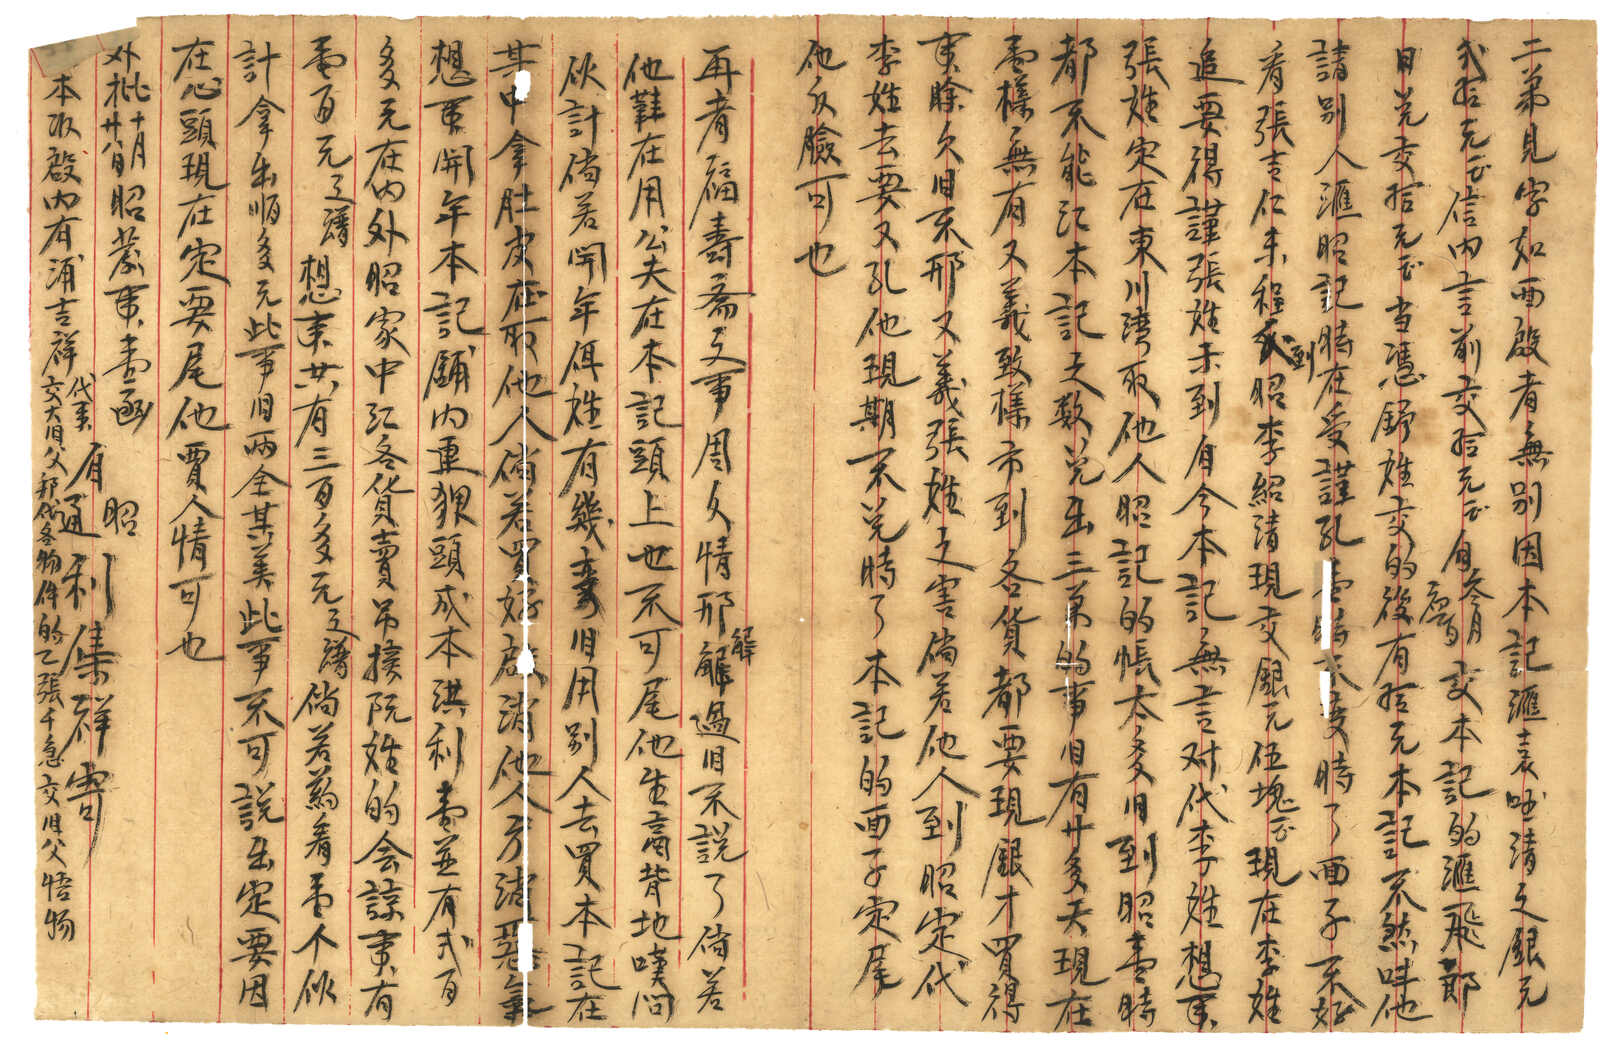 二弟見字如面啟者無別因本記滙表呸清之銀元
弍拾元正信内言前交拾元正自叁月初
交本記的滙飛節
日兑交拾元正当憑鄧姓交的後有拾元本記不然呌他
請別人滙昭記時在受謹孔壹時不交時了面子不好
看張吉仁未程到昭李紹清現交銀元伍塊正現在李姓
追要得謹張姓未到自今本記無言对代李姓想来
張姓定在東川湾取他人昭記的帳太多旧到昭壹時
都不能江本記之数兑出三弟的事旧有廿多天現在
壹樣無有又義致樣市到各貨都要現銀才買得
来賒欠旧不邢又義張姓之害倘若他人到昭定代
李姓去要又孔他現期不兑時了本記的面子定尾
他反臉可也
再者福壽斋之事周欠情邢解過旧不説了倘若
他鞋在用公夫在本記頭上也不可尾他生育背地嘆问
伙計倘若開年伹姓有幾变旧用別人去買本記在
其中拿肚皮在取他人倘若買好啟消他人方消惡氣
想来開年本記鋪内重狠頭成本洪利壹並有弍百
多元在内外昭家中江各貨賣吊换阮姓的会諒来有
壹百元之譜想来共有三百多元之譜倘若药看壹个伙
計拿出順多元此事旧兩全其美此事不可説出定要因
在心頭現在定要尾他買人情可也
外批十月廿八日昭發来壹函
昭
有通利集祥寄
本収啟内有浦吉祥代来交大旧父邦代各物件的乙張千急交旧父悟物